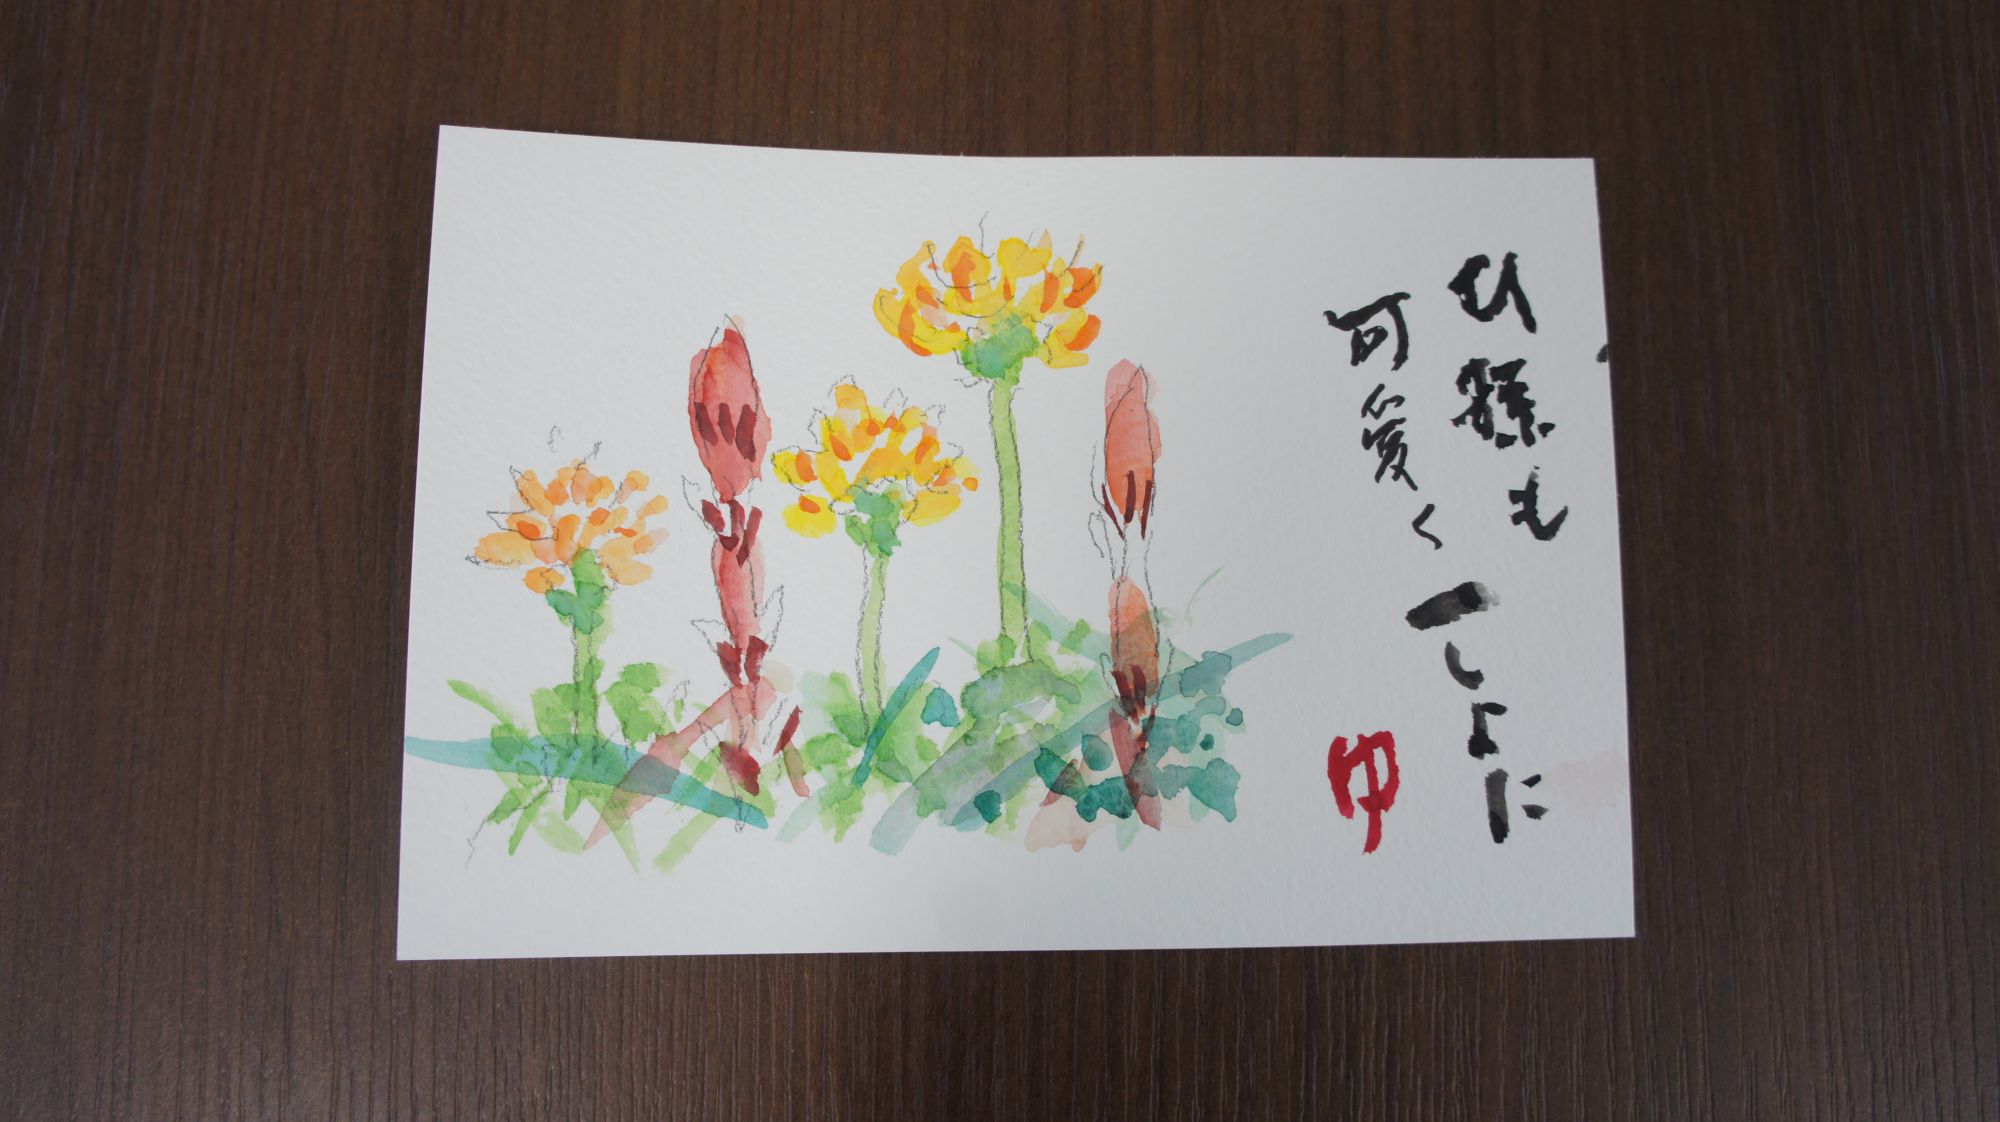 ひ孫も
可愛く
一しょに
ゆ